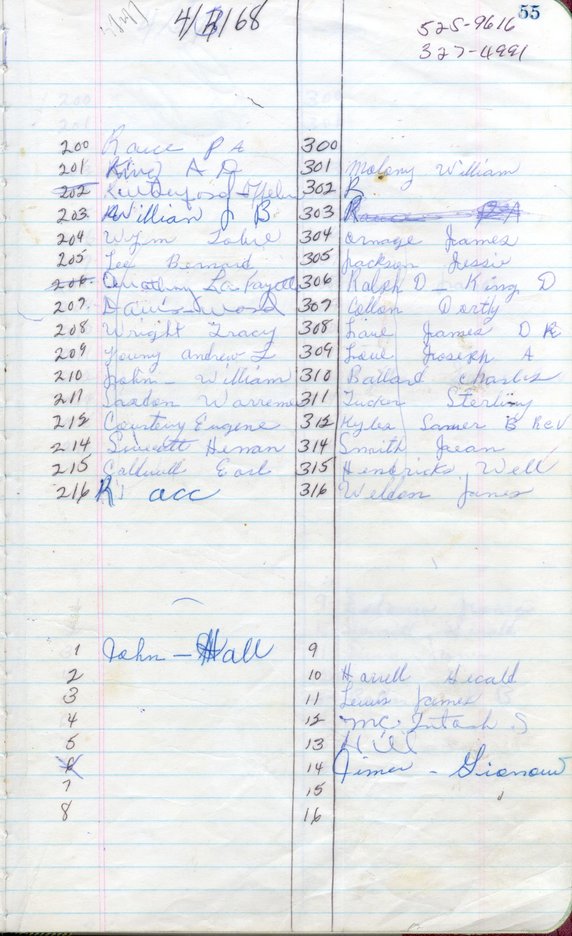 4/3/68
55
525-9616
327-4991
200 Rauce P A
201 King A D
202
203 William J B
204 Wyim
205 Lee Bernard
206 La Fayette
207 Davis-Wood
208 Wright Tracy
209 Young Andrew J
210 John - William
211
212 Courteny Eugene
214 Herman
215 Calluell Earl
216 R acc
300
301 Malony William
302 R
303
304 ornage James
305 Jackson Jessie
306 Ralph D - King D
307 Collon Dorthy
308 Laue James D R
309 Joseph A
310 Ballard Charles
311 Tucker Sterling
312 Kyles Samer B Rev
314 Smith Jean
315 Hendricks Well
316 Weldon James
1 John - Hall
2
3
4
5
6
7
8
9
10 Harell
11 Lewis James
12 Mc Intosh S
13 Hill
14
15
16